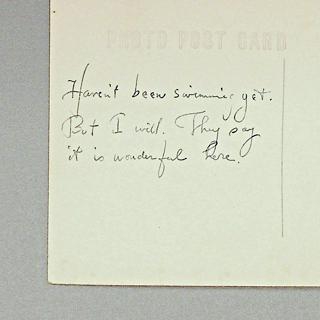 PHOTO POST CARD
Haven't been swimming yet.
But I will. They say
it is wonderful here.